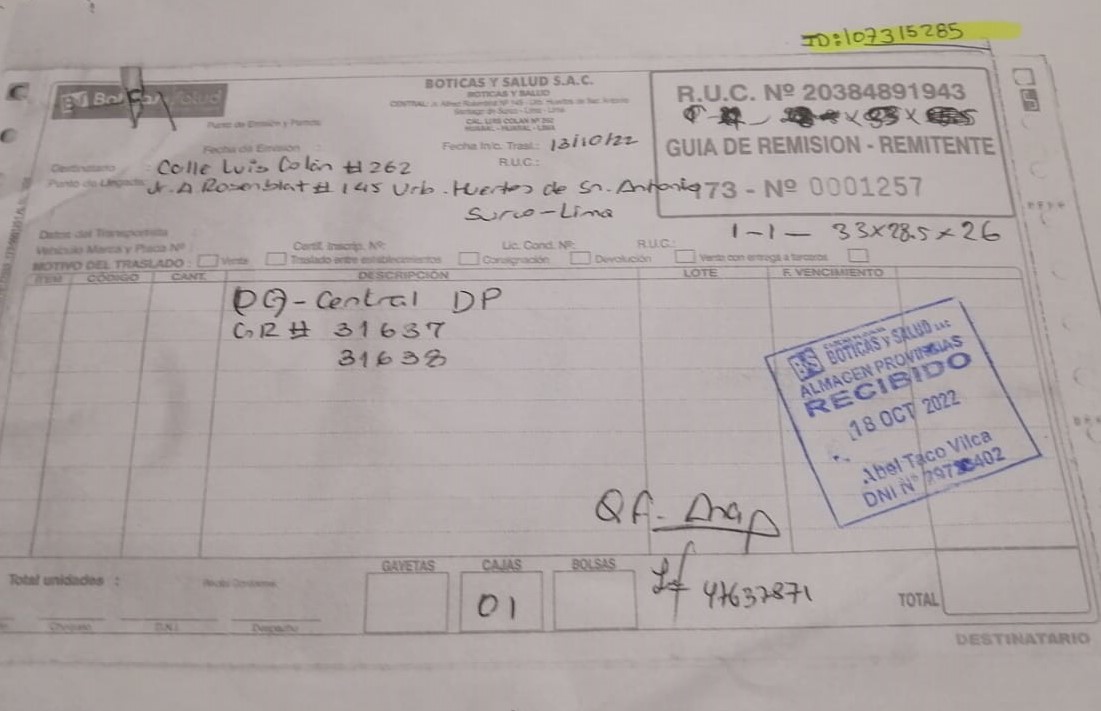 ID:107315285
BOTICAS Y SALUD S.A.C.
BOTICAS Y SALUD
CAL. LUIS COLAN Nº 262
HUARAL - HUARAL - LIMA
R.U.C. Nº 20384891943
GUIA DE REMISION - REMITENTE
73 - Nº 0001257
Punto de Emisión y Partida
Fecha de Emisión :
Fecha Inic. Trasl.: 13/10/22
Destinatario : Calle Luis Colán # 262
R.U.C.:
Punto de Llegada Jr. A Rosenblat # 145 Urb. Huertos de Sn. Antonio
Surco-Lima
1-1- 33x28.5x26
Datos del Transportista
Vehículo Marca y Placa Nº : Certif. Inscrip. Nº: Lic. Cond. Nº: R.U.C.:
MOTIVO DEL TRASLADO : Venta Traslado entre establecimientos Consignación Devolución Venta con entrega a terceros
ITEM CÓDIGO CANT. DESCRIPCIÓN LOTE F. VENCIMIENTO
Central DP
GR # 31637
31638
BS BOTICAS Y SALUD SAC
ALMACEN PROVINCIAS
RECIBIDO
18 OCT 2022
Abel Taco Vilca
DNI Nº
QF.
Total unidades :
GAVETAS CAJAS BOLSAS
01
47637871
TOTAL
D.N.I. Despacho
DESTINATARIO